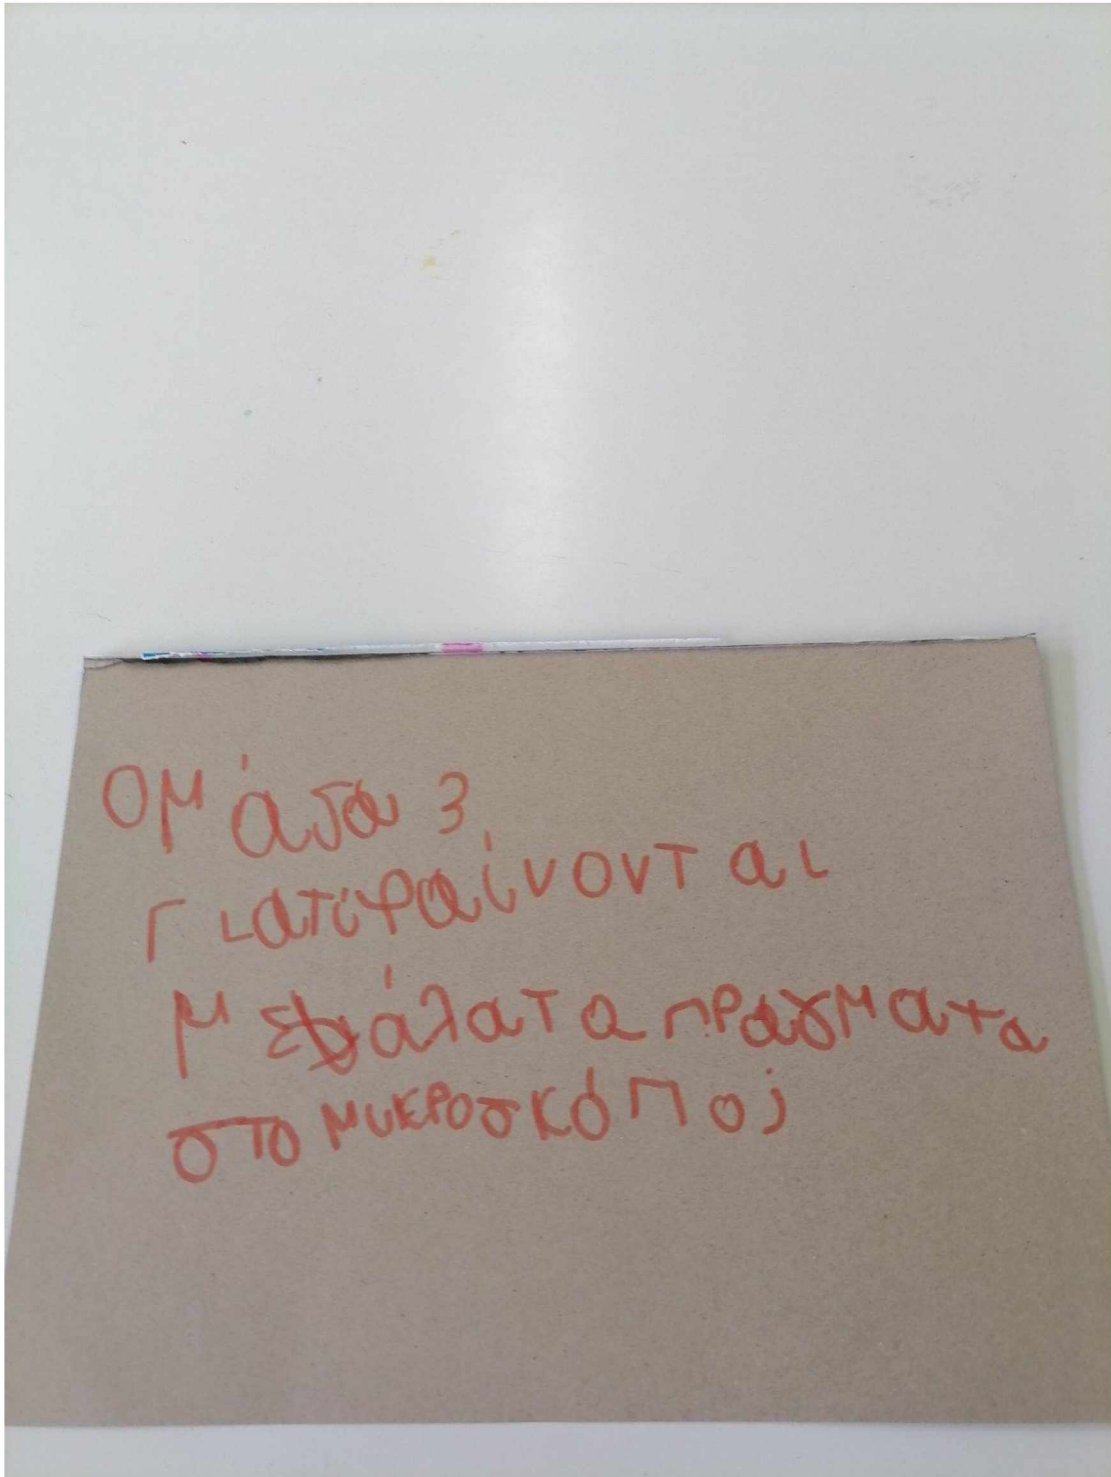 ομάδα 3
Γιατίφαίνονται
μεγάλατα πραγματα
στο μικροσκόπο;